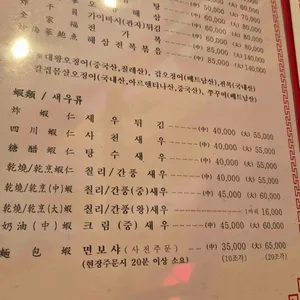 가이바시(관자)튀김
全家福 전가복 (中) 85,000
해삼전복볶음 85,000 (大) 140,000
대왕오징어(중국산,칠레산), 갑오징어(베트남산), 전복(국내산)
갈집몸살오징어(국내산,아르헨티나산,중국산), 쭈꾸미(베트남산)
蝦類 / 새우류
炸蝦仁 새우튀김 (中) 40,000 (大) 55,000
四川蝦仁 사천새우 (中) 40,000 (大) 55,000
糖醋蝦仁 탕수새우 (中) 40,000 (大) 55,000
乾燒/乾烹蝦仁 칠리/간풍 새우 (中) 40,000 (大) 55,000
乾燒/乾烹(中)蝦 칠리/간풍(중)새우 (中) 45,000 (大) 60,000
乾燒/乾烹(大)蝦 칠리/간풍(왕)새우 1마리 16,000
奶油(中)蝦 크림(중)새우 (中) 45,000 (大) 60,000
麵包蝦 면보샤(사전주문) (中) 35,000 (大) 65,000
(현장주문시 20분 이상 소요) (10조각) (20조각)